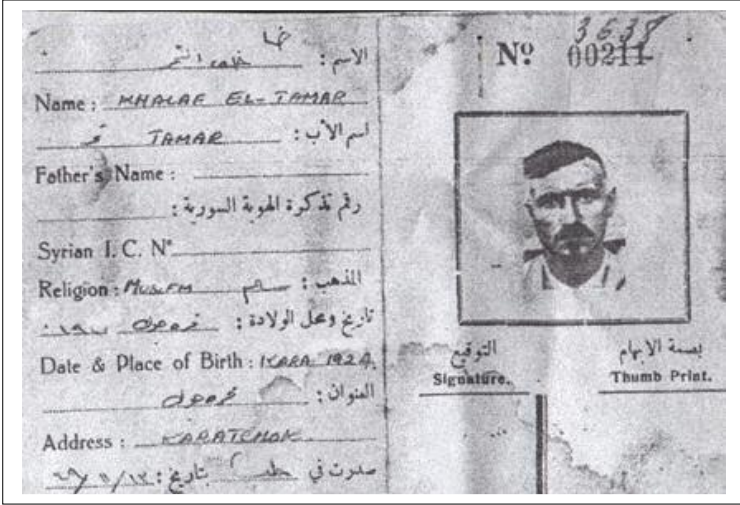 الاسم :
Name : KHALAF EL-TAMAR
اسم الأب : TAMAR تمر
Father's Name :
رقم تذكرة الهوية السورية :
Syrian I. C. Nº
المذهب : مسلم
Religion : MUSLEM
تاريخ ومحل الولادة :
Date & Place of Birth : KARA 1924
العنوان :
Address : KARATCHOK
صدرت في بتاريخ :
3638
Nº 00211
التوقيع
Signature.
بصمة الابهام
Thumb Print.